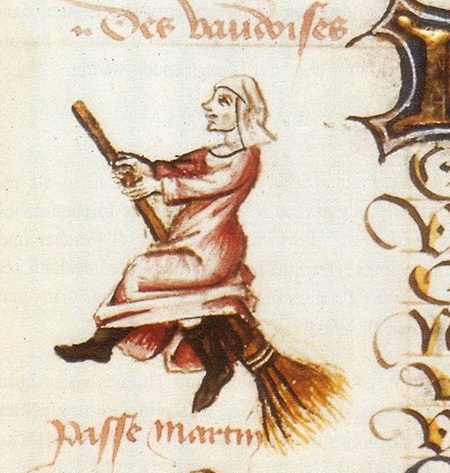 Des vaudoises
passe martin